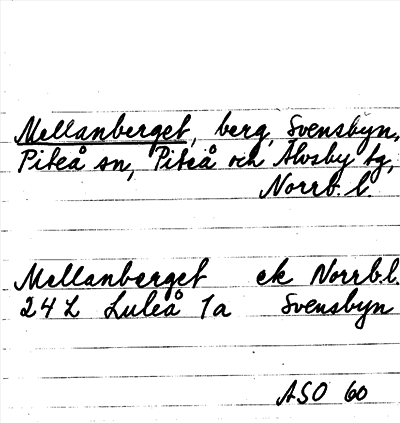 Mellanberget, berg, Svensbyn,
Piteå sn, Piteå och Älvsby tg,
Norrb. l.
Mellanberget ek Norrb.l.
24 L Luleå 1a Svensbyn
ASO 60